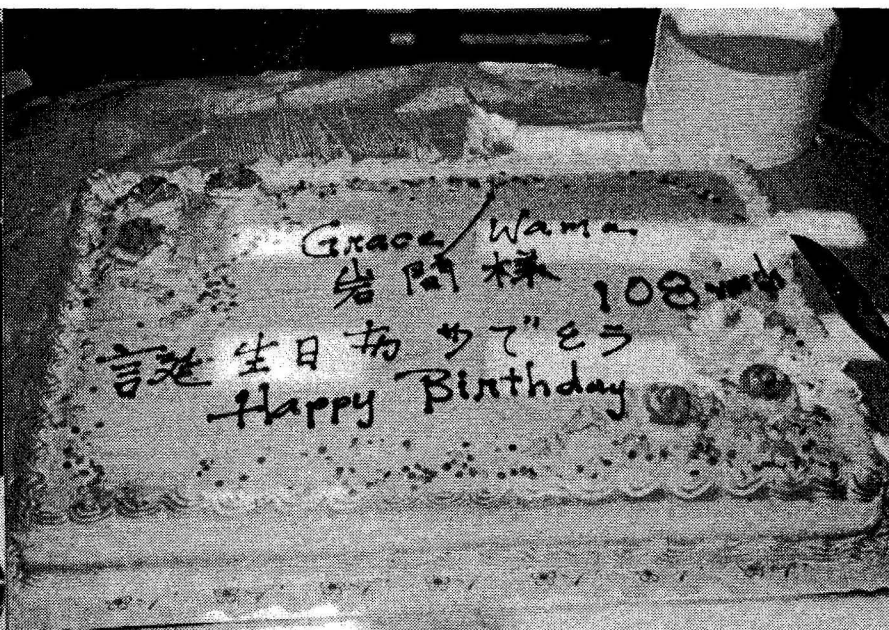 Grace Wama
岩間様 108 years
誕生日おめでとう
Happy Birthday